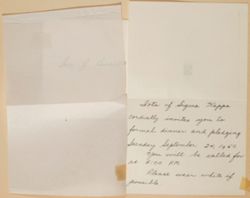 Iota of Sigma Kappa
cordially invites you to
formal dinner and pledging
Sunday September 24, 
You will be called for
at P.M.
Please wear white if
possible